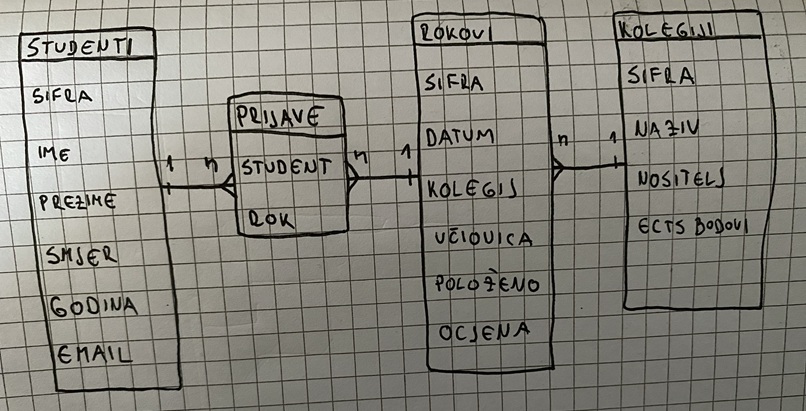 STUDENTI
SIFRA
IME
PREZIME
SMJER
GODINA
EMAIL
1
n
PRIJAVE
STUDENT
ROK
n
1
ROKOVI
SIFRA
DATUM
KOLEGIJ
UČIOVICA
POLOŽENO
OCJENA
n
1
KOLEGIJI
SIFRA
NAZIV
NOSITELJ
ECTS BODOVI